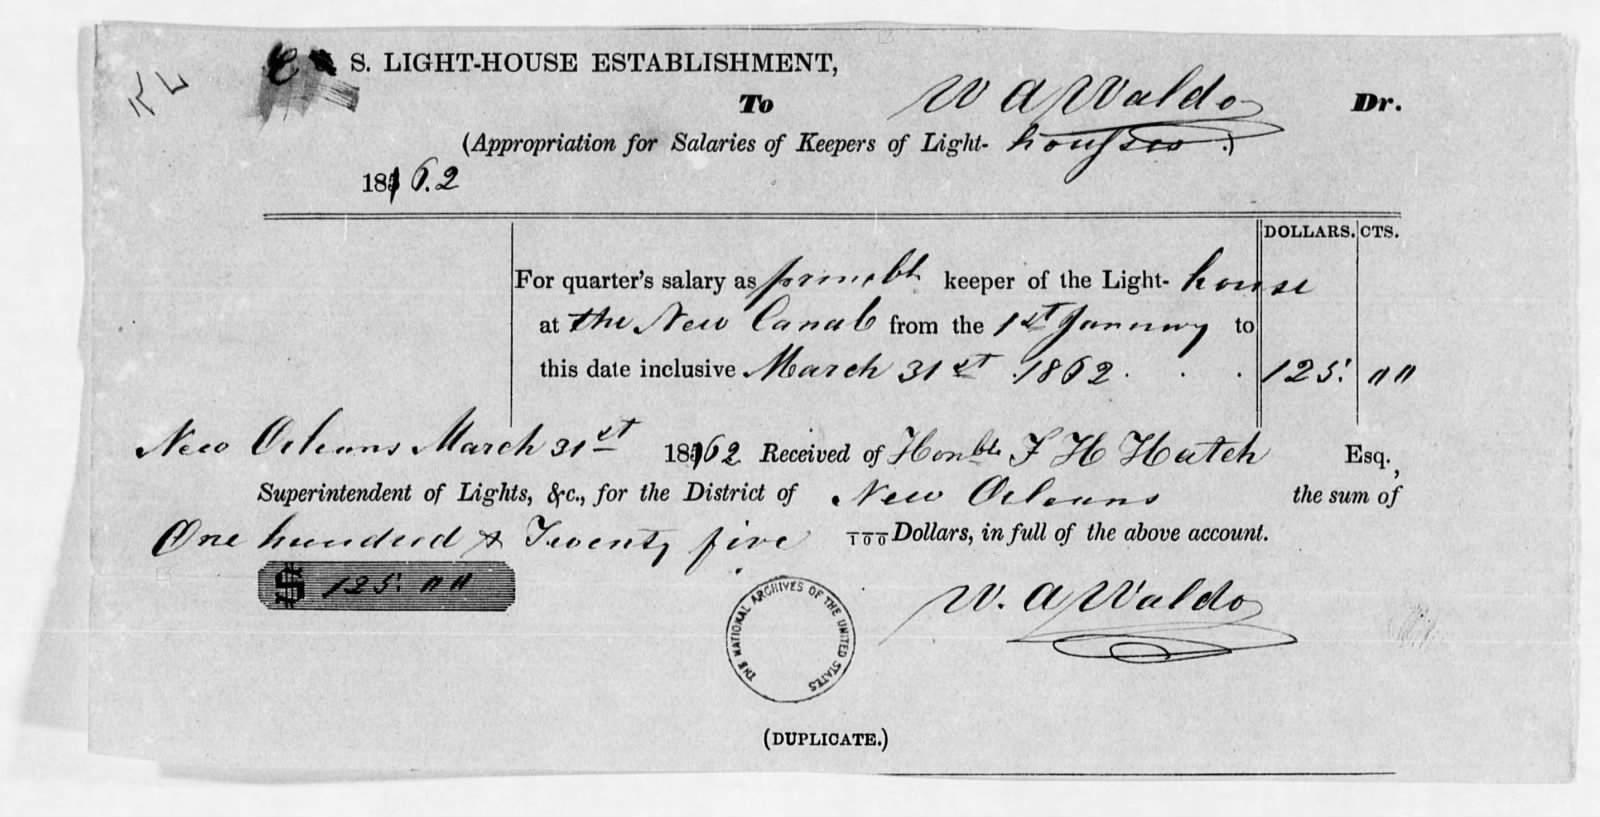 C. S. LIGHT-HOUSE ESTABLISHMENT,
To W A Waldo Dr.
(Appropriation for Salaries of Keepers of Light-houses.)
1862
DOLLARS. CTS.
For quarter's salary as keeper of the Light-house
at the New Canal from the 1st January to
this date inclusive March 31st 1862. . . 125. " "
New Orleans March 31st 1862 Received of Honble F H Hatch Esq.,
Superintendent of Lights, &c., for the District of New Orleans the sum of
One hundred & Twenty five /100 Dollars, in full of the above account.
$ 125. " "
W. A Waldo
THE NATIONAL ARCHIVES OF THE UNITED STATES
(DUPLICATE.)